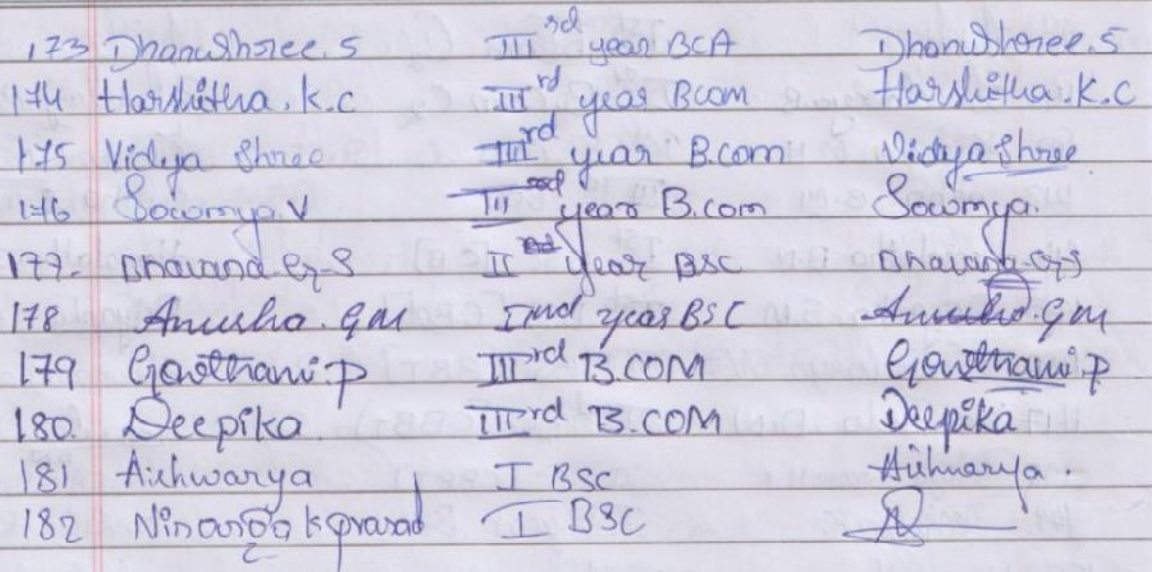 173 Dhanushree.S IIIrd year BCA Dhanushree.S
174 Harshitha.K.C IIIrd year BCom Harshitha.K.C
175 Vidya Shree IIIrd year B.com Vidya Shree
176 Sowmya.V III year B.com Sowmya.
177- Bhavana.G-S II year BSC Bhavana.G-S
178 Anusha.GM IInd year BSC Anusha.GM
179 Gowthami.P IIIrd B.COM Gowthami.P
180. Deepika IIIrd B.COM Deepika
181 Aishwarya I BSC Aishwarya.
182 K prasad I BSC